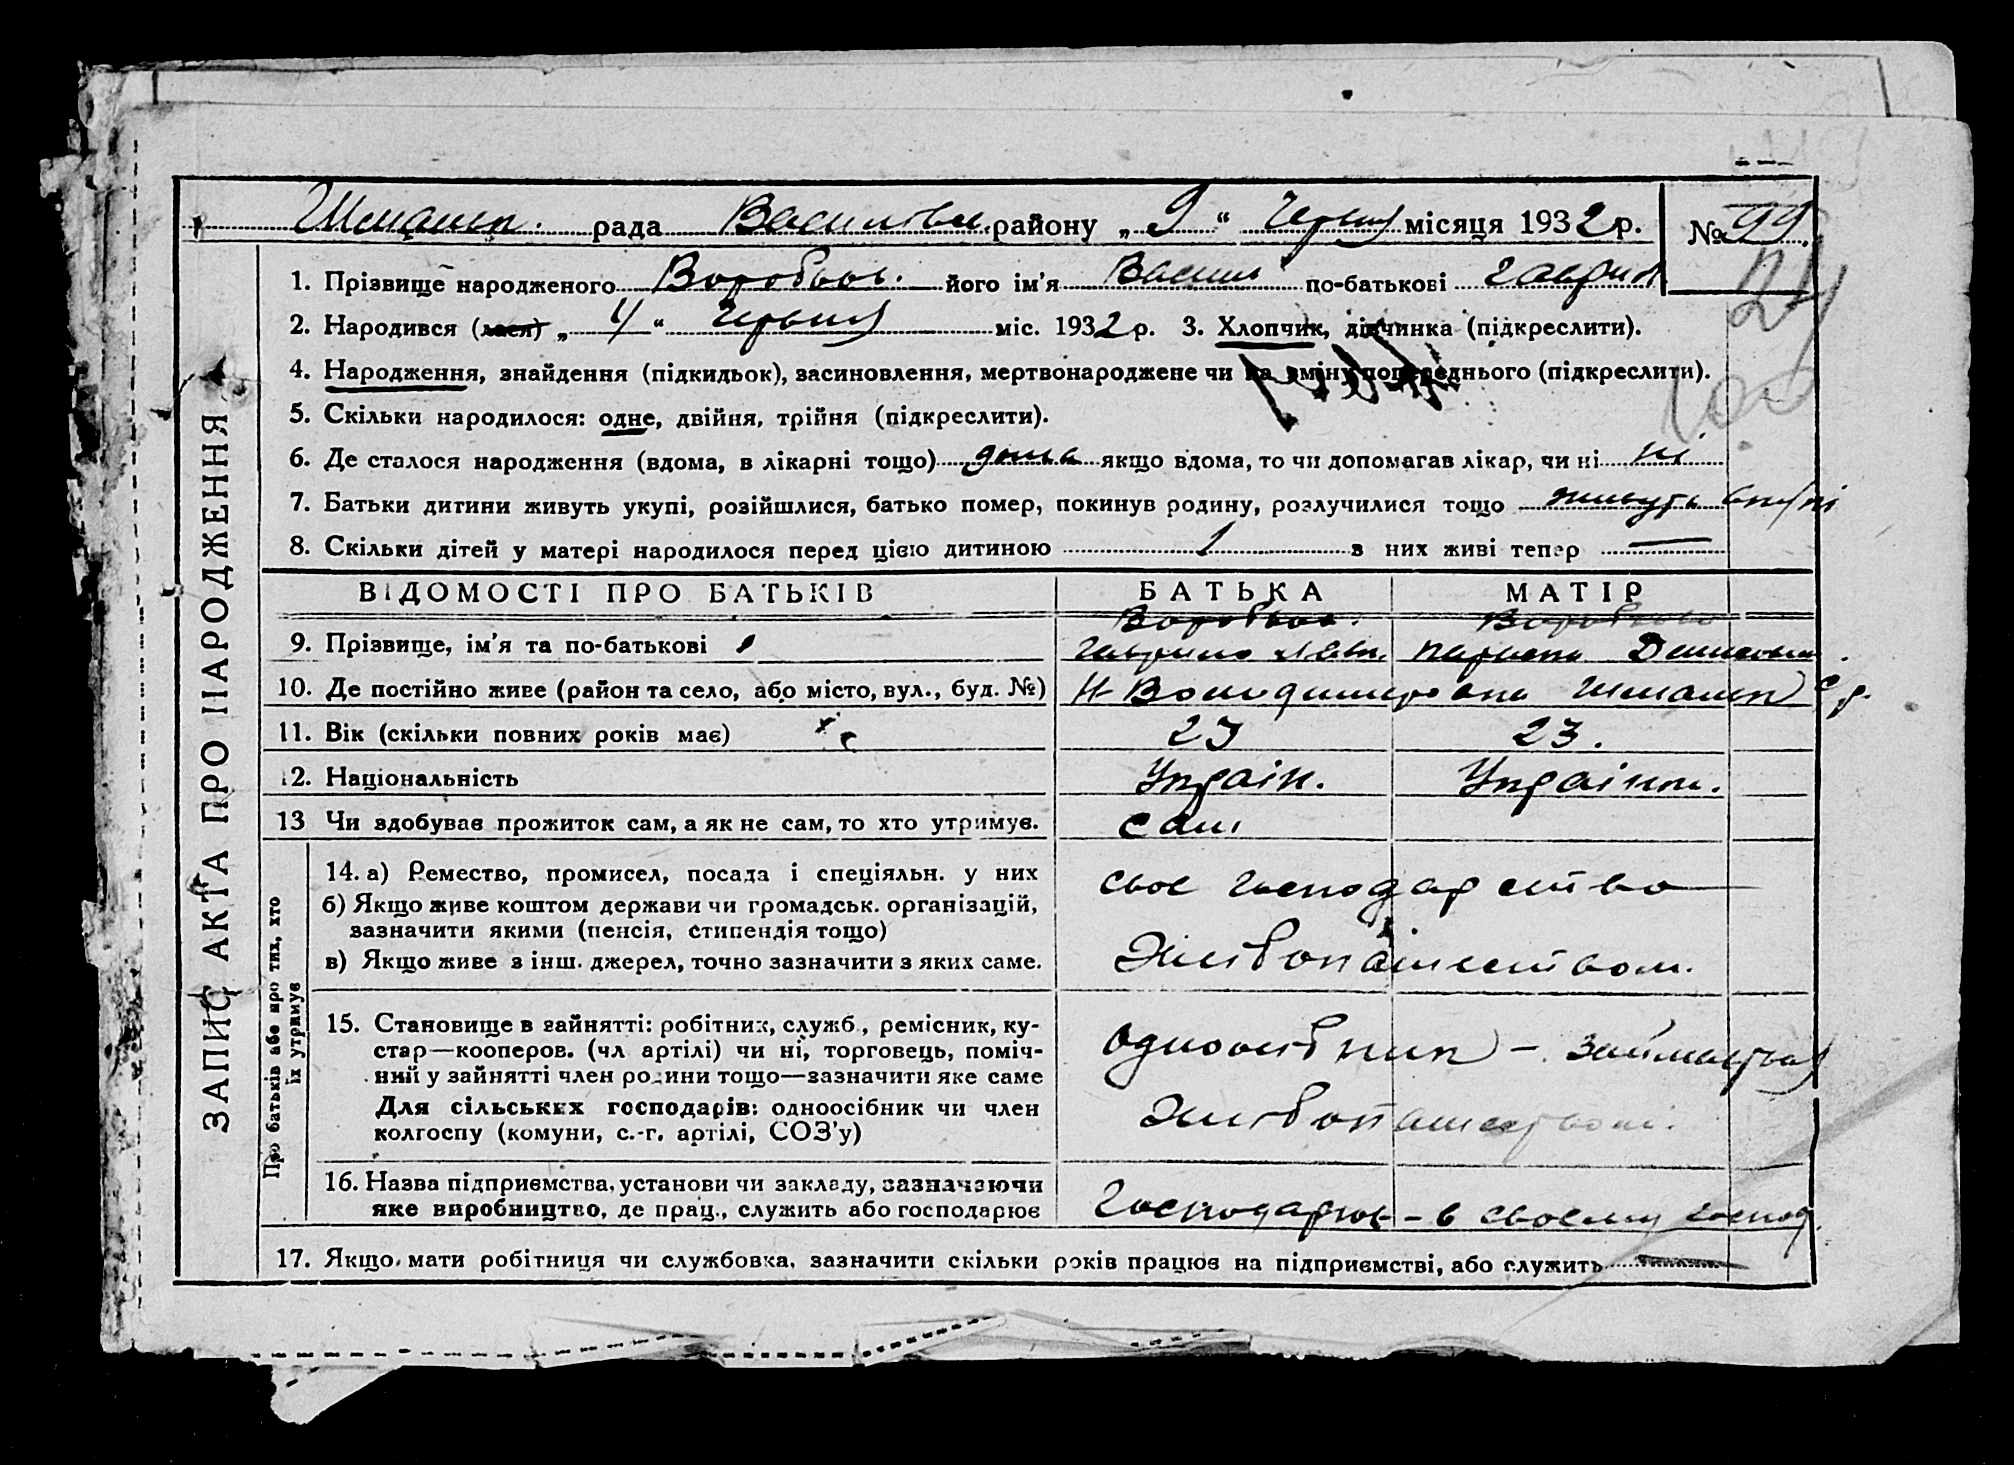 рада Васильвк. району „9“ Червня місяця 1932 р. № 99.
1. Прізвище народженого Воробйов. його ім'я Василь по-батькові Гаврил
2. Народився (лася) „4“ Червня міс. 1932 р. 3. Хлопчик, дівчинка (підкреслити).
24
4. Народження, знайдення (підкидьок), засиновлення, мертвонароджене чи на зміну попереднього (підкреслити).
100
5. Скільки народилося: одне, двійня, трійня (підкреслити).
6. Де сталося народження (вдома, в лікарні тощо) дома якщо вдома, то чи допомагав лікар, чи ні ні
7. Батьки дитини живуть укупі, розійшлися, батько помер, покинув родину, розлучилися тощо живуть вкупі
8. Скільки дітей у матері народилося перед цією дитиною 1 з них живі тепер —
ЗАПИС АКТА ПРО НАРОДЖЕННЯ
ВІДОМОСТІ ПРО БАТЬКІВ БАТЬКА МАТІР
Воробйов.
9. Прізвище, ім'я та по-батькові Гаврило
10. Де постійно живе (район та село, або місто, вул., буд. №)
11. Вік (скільки повних років має) 23 23.
12. Національність Украін. Украінка.
13 Чи здобуває прожиток сам, а як не сам, то хто утримує. Сам
Про батьків або про тих, хто їх утримує
14. а) Ремество, промисел, посада і спеціяльн. у них своє господарство
б) Якщо живе коштом держави чи громадськ. організацій,
зазначити якими (пенсія, стипендія тощо)
в) Якщо живе з інш. джерел, точно зазначити з яких саме.
15. Становище в зайнятті: робітник, служб., ремісник, ку-
стар—кооперов. (чл. артілі) чи ні, торговець, поміч- одноосібник –
ний у зайнятті член родини тощо—зазначити яке саме
Для сільських господарів: одноосібник чи член
колгоспу (комуни, с.-г. артілі, СОЗ'у)
16. Назва підприємства, установи чи закладу, зазначаючи
яке виробництво, де прац., служить або господарює Господарює – в своєму господ.
17. Якщо мати робітниця чи службовка, зазначити скільки років працює на підприємстві, або служить